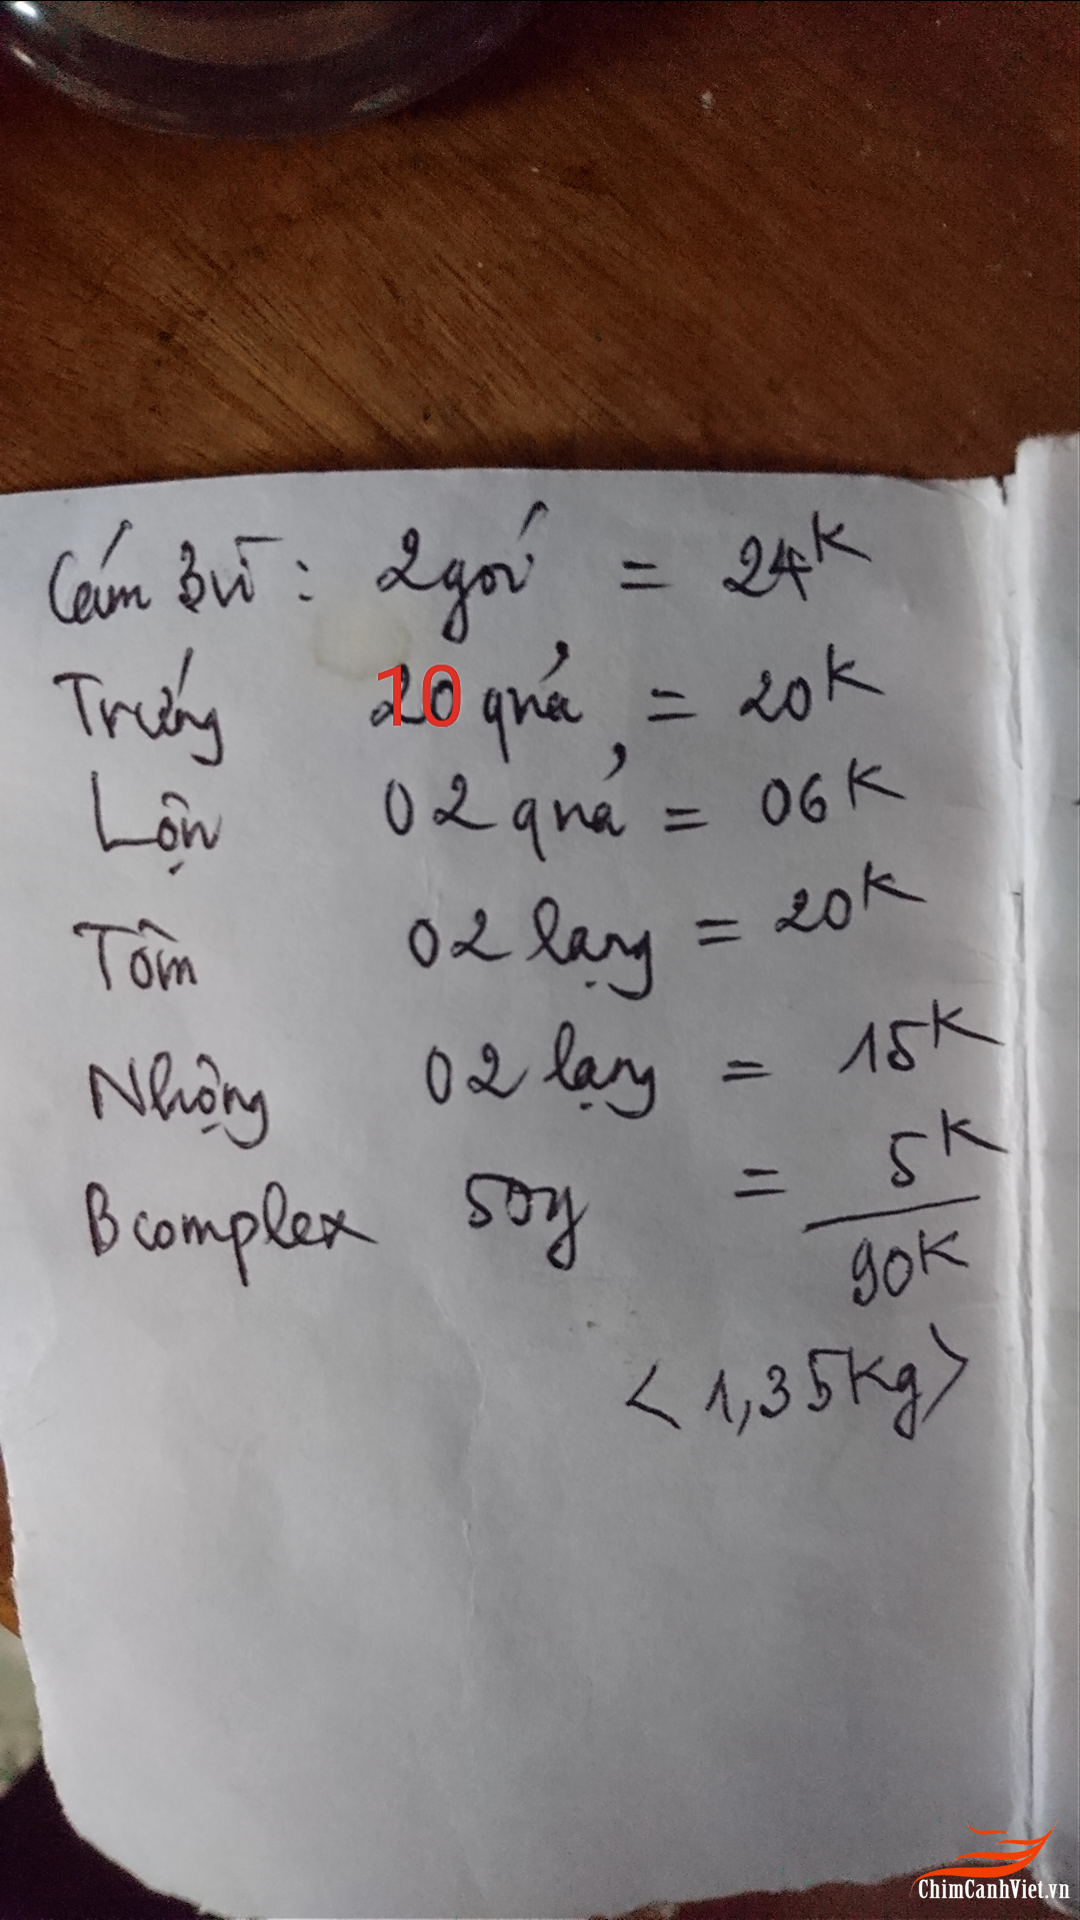 Cám 3 vì : 2 gói = 24K
Trứng 10 quả = 20K
Lộn 02 quả = 06K
Tôm 02 lạng = 20K
Nhộng 02 lạng = 15K
B complex = 5K
90K
< 1,35 kg >
ChimCanhViet.vn